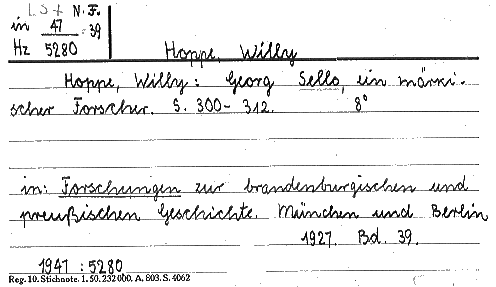 L S f N. F.
in 47 : 39
Hz 5280
Hoppe, Willy
Hoppe, Willy: Georg Sello, ein märki-
scher Forscher. S. 300-312. 8°
in: Forschungen zur brandenburgischen und
preußischen Geschichte. München und Berlin
1927. Bd. 39.
1941 : 5280
Reg. 10. Stichnote. 1. 50. 232000. A. 803. S. 4062